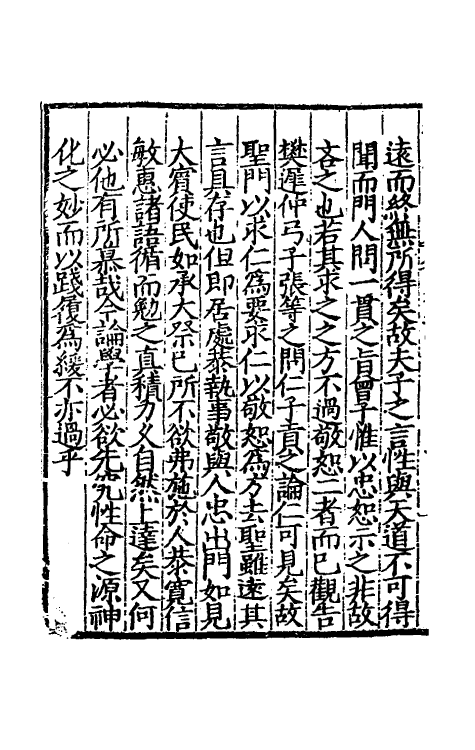 遠而終無所得矣故夫子之言性與天道不可得
聞而門人問一貫之旨曾子惟以忠恕示之非故
吝之也若其求之之方不過敬恕二者而已觀告
樊遲仲弓子張等之問仁子貢之論仁可見矣故
聖門以求仁為要求仁以敬恕為方去聖雖遠其
言具存也但即居處恭執事敬與人忠出門如見
大賓使民如承大祭己所不欲弗施於人恭寬信
敏惠諸語循而勉之真積力久自然上達矣又何
必他有所慕哉今論學者必欲先究性命之源神
化之妙而以踐履為緩不亦過乎